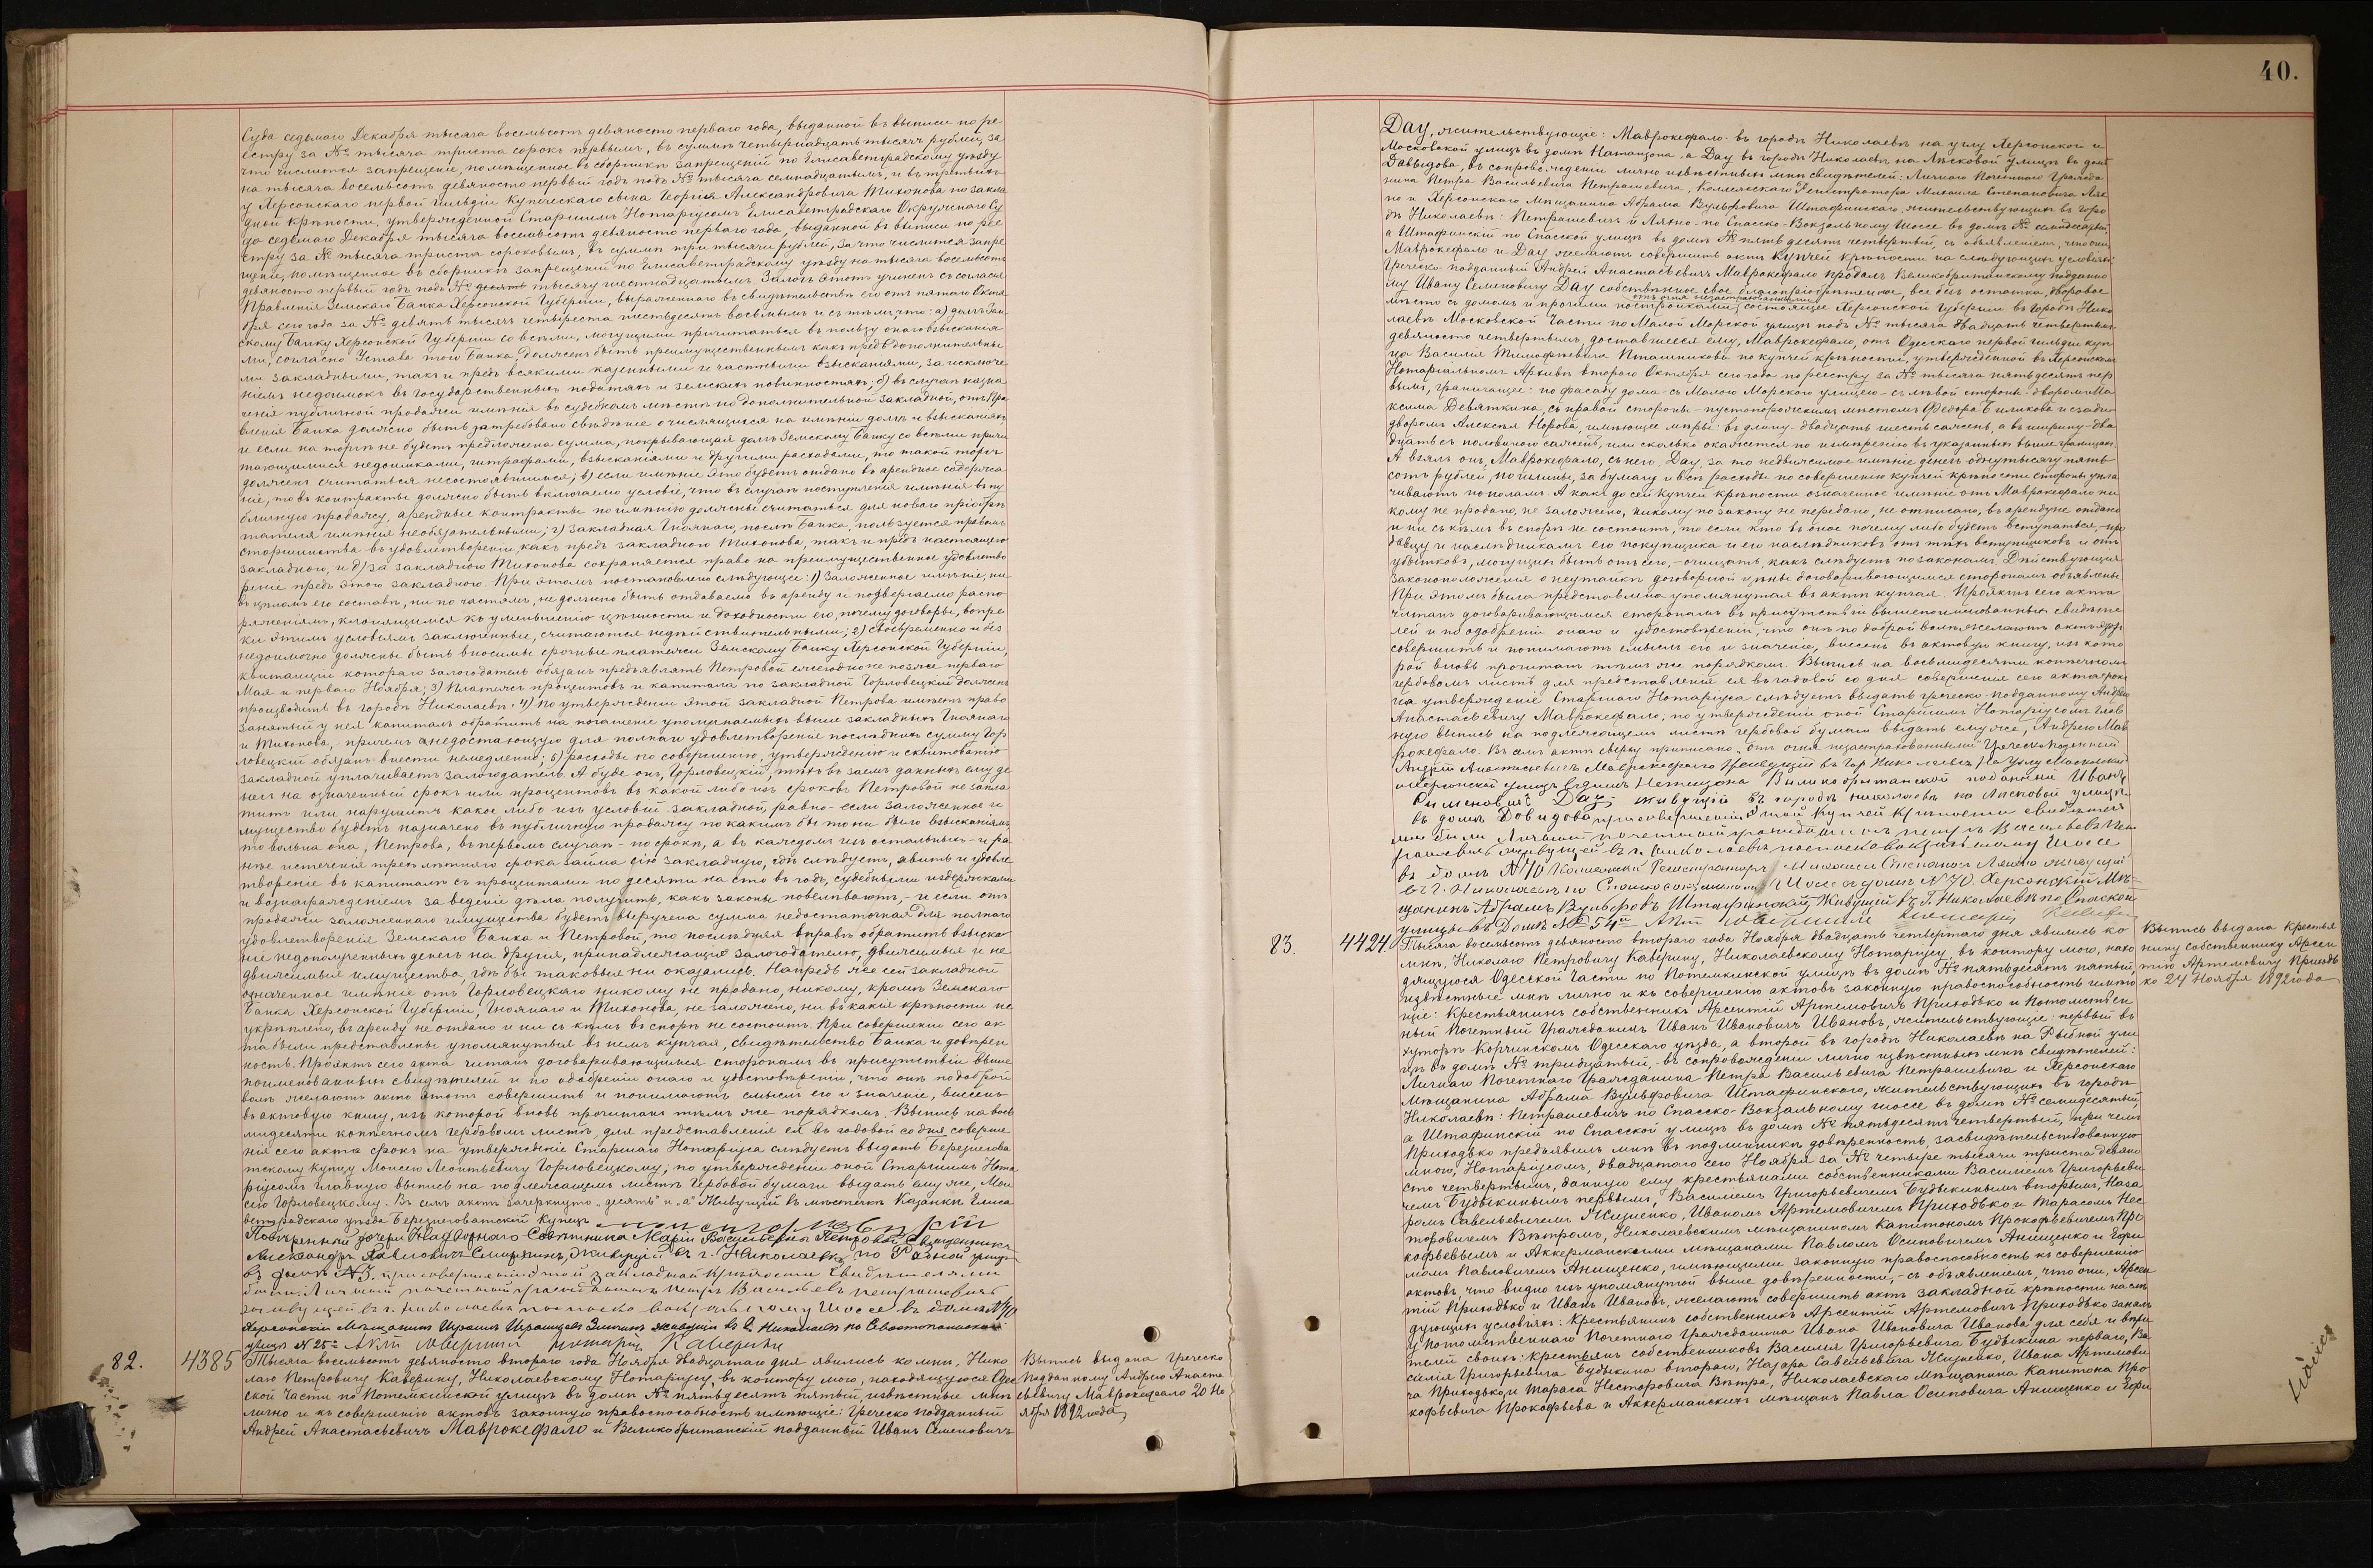 Суда седьмаго Декабря тысяча восемьсотъ девяносто перваго года, выданной въ выписи по ре
естру за № тысяча триста сорокъ первымъ, въ суммѣ четырнадцать тысячъ рублей, за
что числится запрещеніе, помѣщенное въ сборникѣ запрещеній по Елисаветградскому уѣзду
на тысяча восемьсотъ девяносто первый годъ подъ № тысяча семнадцатымъ, и въ третьихъ
у Херсонскаго первой гильдіи купеческаго сына Георгія Александровича Тихонова по заклад
дной крѣпости, утвержденной Старшимъ Нотаріусомъ Елисаветградскаго Окружнаго Су
да седьмаго Декабря тысяча восемьсотъ девяносто перваго года, выданной въ выписи по рее
стру за № тысяча триста сороковымъ, въ суммѣ три тысячи рублей, за что числится запре
щеніе, помѣщенное въ сборникѣ запрещеній по Елисаветградскому уѣзду на тысяча восемьсотъ
девяносто первый годъ подъ № десять тысячу шестнадцатымъ. Залогъ этотъ учиненъ съ согласія
Правленія Земскаго Банка Херсонской Губерніи, выраженнаго въ свидѣтельствѣ его отъ пятаго Октя
бря сего года за № девять тысячъ четыреста шестьдесятъ восьмымъ и съ тѣмъ, что: а) долгъ Зем
скому Банку Херсонской Губерніи со всѣми, могущими причитаться въ пользу онаго взысканія
ми, согласно Уставу того Банка, долженъ быть преимущественнымъ какъ предъ дополнительны
ми закладными, такъ и предъ всякими казенными и частными взысканіями, за исключе
ніемъ недоимокъ въ государственныхъ податяхъ и земскихъ повинностяхъ; б) въ случаѣ назна
ченія публичной продажи имѣнія въ судебномъ мѣстѣ по дополнительной закладной, отъ Пра
вленія Банка должно быть затребовано свѣдѣніе о числящихся на имѣніи долгѣ и взысканіяхъ
и если на торгѣ не будетъ предложена сумма, покрывающая долгъ Земскому Банку со всѣми причи
тающимися недоимками, штрафами, взысканіями и другими расходами, то такой торгъ
долженъ считаться несостоявшимся; в) если имѣніе это будетъ отдано въ арендное содержа
ніе, то въ контракты должно быть включаемо условіе, что въ случаѣ поступленія имѣнія въ пу
бличную продажу, арендные контракты по имѣнію должны считаться для новаго пріобрѣ
тателя имѣнія необязательными; г) закладная Гноянаго, послѣ Банка, пользуется правомъ
старшинства въ удовлетвореніи, какъ предъ закладною Тихонова, такъ и предъ настоящею
закладною, и д) за закладною Тихонова сохраняется право на преимущественное удовлетво
реніе предъ этою закладною. При этомъ постановлено слѣдующее: 1) Заложенное имѣніе, ни
въ цѣломъ его составѣ, ни по частямъ, не должно быть отдаваемо въ аренду и подвергаемо распо
ряженіямъ, клонящимся къ уменьшенію цѣнности и доходности его, почему договоры, вопре
ки этимъ условіямъ заключенные, считаются недѣйствительными; 2) Своевременно и безъ
недоимочно должны быть вносимы срочные платежи Земскому Банку Херсонской Губерніи,
квитанціи котораго залогодатель обязанъ предъявлять Петровой ежегодно не позже перваго
Мая и перваго Ноября; 3) Платежъ процентовъ и капитала по закладной Горловецкій долженъ
производить въ городѣ Николаевѣ; 4) По утвержденіи этой закладной Петрова имѣетъ право
занятый у нея капиталъ обратить на погашеніе упоминаемыхъ выше закладныхъ Гноянаго
и Тихонова, причемъ недостающую для полнаго удовлетворенія послѣднихъ сумму Гор
ловецкій обязанъ внести немедленно; 5) расходы по совершенію, утвержденію и сквитованію
закладной уплачиваетъ залогодатель. А буде онъ, Горловецкій, тѣхъ въ заемъ данныхъ ему де
негъ на означенный срокъ или процентовъ въ какой либо изъ сроковъ Петровой не запла
титъ или нарушитъ какое либо изъ условій закладной, равно - если заложенное и
мущество будетъ назначено въ публичную продажу по какимъ бы то ни было взысканіямъ
то вольна она, Петрова, въ первомъ случаѣ - по срокѣ, а въ каждомъ изъ остальныхъ - и ра
нѣе истеченія трехлѣтняго срока займа сію закладную, гдѣ слѣдуетъ, явить и удовле
твореніе въ капиталѣ съ процентами по десяти на сто въ годъ, судебными издержками
и вознагражденіемъ за веденіе дѣла получить, какъ законы повелѣваютъ, - и если отъ
продажи заложеннаго имущества будетъ выручена сумма недостаточная для полнаго
удовлетворенія Земскаго Банка и Петровой, то послѣдняя вправѣ обратить взыска
ніе недополученныхъ денегъ на другія, принадлежащія залогодателю, движимыя и не
движимыя имущества, гдѣ бы таковыя ни оказались. Напредъ же сей закладной
означенное имѣніе отъ Горловецкаго никому не продано, никому, кромѣ Земскаго
Банка Херсонской Губерніи, Гноянаго и Тихонова, не заложено, ни въ какія крѣпости не
укрѣплено, въ аренду не отдано и ни съ кѣмъ въ спорѣ не состоитъ. При совершеніи сего ак
та были представлены упомянутыя въ немъ купчая, свидѣтельство Банка и довѣрен
ность. Проэктъ сего акта читанъ договаривающимся сторонамъ въ присутствіи выше
поименованныхъ свидѣтелей и по одобреніи онаго и удостовѣреніи, что они по доброй
волѣ желаютъ актъ этотъ совершить и понимаютъ смыслъ его и значеніе, внесенъ
въ актовую книгу, изъ которой вновь прочитанъ тѣмъ же порядкомъ. Выпись на вось
мидесяти копѣечномъ гербовомъ листѣ, для представленія ея въ годовой со дня соверше
нія сего акта срокъ на утвержденіе Старшаго Нотаріуса слѣдуетъ выдать Березнегова
тскому купцу Моисею Леонтьевичу Горловецкому; по утвержденіи оной Старшимъ Нота
ріусомъ главную выпись на подлежащемъ листѣ гербовой бумаги выдать ему же, Мои
сею Горловецкому. Въ семъ актѣ зачеркнуто „десять“ и „а“ Живущій въ мѣстечкѣ Казанкѣ Елиса
ветградскаго уѣзда Березнеговатскій Купецъ
Повѣренный дочери Надворнаго Совѣтника Маріи Васильевны Петровой Священникъ
Александръ Павловичъ живущій въ г. Николаевѣ по Рыбной улицѣ
въ домѣ № 3. при совершеніи этой закладной крѣпости свидѣтелями
были: Личный почетный гражданинъ Петръ Васильевъ Петрашевичъ
живущій въ г. Николаевѣ по спаско вокзальному шоссе въ домѣ № 70
Херсонскій Мѣщанинъ живущій въ г. Николаевѣ по Севастопольской
улицѣ № 25й Актъ совершилъ Нотаріусъ Каверинъ
82. 4385 Тысяча восемьсотъ девяносто втораго года Ноября двадцатаго дня явились ко мнѣ, Нико
лаю Петровичу Каверину, Николаевскому Нотаріусу, въ контору мою, находящуюся Одес
ской Части по Потемкинской улицѣ въ домѣ № пятьдесятъ пятый, извѣстные мнѣ
лично и къ совершенію актовъ законную правоспособность имѣющіе: Греческо подданный
Андрей Анастасьевичъ Маврокефало и Великобританскій подданный Иванъ Семеновичъ
Выпись выдана Греческо
подданному Андрею Анаста
сьевичу Маврокефало 20 Но
ября 1892 года
40.
Day, жительствующіе: Маврокефало въ городѣ Николаевѣ на углу Херсонской и
Московской улицъ въ домѣ Натанзона, а Day въ городѣ Николаевѣ на Лѣсковой улицѣ въ домѣ
Давыдова, въ сопровожденіи лично извѣстныхъ мнѣ свидѣтелей: Личнаго Почетнаго Гражда
нина Петра Васильевича Петрашевича, Коллежскаго Регистратора Михаила Степановича Лях
но и Херсонскаго Мѣщанина Абрама Вульфовича Штафинскаго, жительствующихъ въ горо
дѣ Николаевѣ: Петрашевичъ и Ляхно - по Спасско-Вокзальному шоссе въ домѣ № семидесятый,
а Штафинскій по Спасской улицѣ въ домѣ № пятьдесятъ четвертый, съ объявленіемъ, что они,
Маврокефало и Day желаютъ совершить актъ купчей крѣпости на слѣдующихъ условіяхъ:
Греческо-подданный Андрей Анастасьевичъ Маврокефало продалъ Великобританскому подданно
му Ивану Семеновичу Day собственное свое благопріобрѣтенное, все безъ остатка, дворовое
мѣсто съ домомъ и прочими отъ огня незастрахованными постройками, состоящее Херсонской Губерніи въ городѣ Нико
лаевѣ Московской Части по Малой Морской улицѣ подъ № тысяча двадцать четвертымъ
девяносто четвертымъ, доставшееся ему, Маврокефало, отъ Одесскаго первой гильдіи куп
ца Василія Тимофѣевича Пташникова по купчей крѣпости, утвержденной въ Херсонскомъ
Нотаріальномъ Архивѣ втораго Октября сего года по реестру за № тысяча пятьдесятъ пер
вымъ, граничащее: по фасаду дома - съ Малою Морскою улицею - съ лѣвой стороны - дворомъ Ма
ксима Девяткина, съ правой стороны - пустопорожнимъ мѣстомъ Федора Биликова и сзади
дворомъ Алексѣя Норова, имѣющее мѣры: въ длину - двадцать шесть саженъ, а въ ширину - два
дцать съ половиною саженъ, или сколько окажется по измѣренію въ указанныхъ выше границахъ.
А взялъ онъ, Маврокефало, съ него, Day, за то недвижимое имѣніе денегъ одну тысячу пять
сотъ рублей, пошлины, за бумагу и всѣ расходы по совершенію купчей крѣпости стороны упла
чиваютъ пополамъ. А какъ до сей купчей крѣпости означенное имѣніе отъ Маврокефало ни
кому не продано, не заложено, никому по закону не передано, не отписано, въ аренду не отдано
и ни съ кѣмъ въ спорѣ не состоитъ, то если кто въ оное почему либо будетъ вступаться, про
давцу и наслѣдникамъ его покупщика и его наслѣдниковъ отъ тѣхъ вступщиковъ и отъ
убытковъ, могущихъ быть отъ сего, - очищать, какъ слѣдуетъ по законамъ. Дѣйствующія
законоположенія о неутайкѣ договорной цѣны договаривающимся сторонамъ объявлены.
При этомъ была представлена упомянутая въ актѣ купчая. Проэктъ сего акта
читанъ договаривающимся сторонамъ въ присутствіи вышепоименованныхъ свидѣте
лей и по одобреніи онаго и удостовѣреніи, что они по доброй волѣ желаютъ актъ этотъ
совершить и понимаютъ смыслъ его и значеніе, внесенъ въ актовую книгу, изъ кото
рой вновь прочитанъ тѣмъ же порядкомъ. Выпись на восьмидесяти копѣечномъ
гербовомъ листѣ для представленія ея въ годовой со дня совершенія сего акта срокъ
на утвержденіе Старшаго Нотаріуса слѣдуетъ выдать греческо-подданному Андрею
Анастасьевичу Маврокефало; по утвержденіи оной Старшимъ Нотаріусомъ глав
ную выпись на подлежащемъ листѣ гербовой бумаги выдать ему же, Андрею Мав
рокефало. Въ семъ актѣ сверху приписано „отъ огня незастрахованными“ Греческо подданный
Андрей Анастасіевичъ Маврокефало Живущій въ Гор Николаевѣ На Углу Московской
и Херсонской улицъ въ домѣ Натанзона Великобританскій поданный Иванъ
Сименовичъ Day живущій въ городѣ николаевѣ на Лясковой улицѣ
въ домѣ Давидова при совершеніи этой купчей крѣпости свидѣтел
ями были Личный почетный гражданинъ петръ Васильевъ Пет
рашевичъ живущій въ г. Николаевѣ по спасковокзальному шоссе
въ домѣ № 70 Колежскій Регистраторъ Михаилъ Степановъ Ляхно живущій
въ г. Николаевѣ по Спаскововокзальному Шоссе въ домѣ № 70. Херсонскій Мѣ-
щанинъ Абрамъ Вульфовъ Штафинскій Живущій въ Г. Николаевѣ по Спаской
улицѣ въ Домѣ № 54й Актъ совершилъ Нотаріусъ
83. 4424 Тысяча восемьсотъ девяносто втораго года Ноября двадцать четвертаго дня явились ко
мнѣ, Николаю Петровичу Каверину, Николаевскому Нотаріусу, въ контору мою, нахо
дящуюся Одесской Части по Потемкинской улицѣ въ домѣ № пятьдесятъ пятый,
извѣстные мнѣ лично и къ совершенію актовъ законную правоспособность имѣю
щіе: Крестьянинъ собственникъ Арсентій Артемовичъ Приходько и Потомствен
ный Почетный Гражданинъ Иванъ Ивановичъ Ивановъ, жительствующіе: первый въ
хуторѣ Корчинскомъ Одесскаго уѣзда, а второй въ городѣ Николаевѣ на Рыбной ули
цѣ въ домѣ № тридцатый, - въ сопровожденіи лично извѣстныхъ мнѣ свидѣтелей:
Личнаго Почетнаго Гражданина Петра Васильевича Петрашевича и Херсонскаго
Мѣщанина Абрама Вульфовича Штафинскаго, жительствующихъ въ городѣ
Николаевѣ: Петрашевичъ по Спасско-Вокзальному шоссе въ домѣ № семидесятый,
а Штафинскій по Спасской улицѣ въ домѣ № пятьдесятъ четвертый, при чемъ
Приходько предъявилъ мнѣ въ подлинникѣ довѣренность, засвидѣтельствованную
мною, Нотаріусомъ, двадцатаго сего Ноября за № четыре тысячи триста девяно
сто четвертымъ, данную ему крестьянами собственниками Василіемъ Григорьеви
чемъ Будыкинымъ первымъ, Василіемъ Григорьевичемъ Будыкинымъ вторымъ, Наза
ромъ Савельевичемъ Жиленко, Иваномъ Артемовичемъ Приходько и Тарасомъ Нес
торовичемъ Вѣтромъ, Николаевскимъ мѣщаниномъ Капитономъ Прокофьевичемъ Про
кофьевымъ и Аккерманскими мѣщанами Павломъ Осиповичемъ Анищенко и Гори
момъ Павловичемъ Анищенко, имѣющими законную правоспособность къ совершенію
актовъ, что видно изъ упомянутой выше довѣренности, - съ объявленіемъ, что они, Арсен
тій Приходько и Иванъ Ивановъ, желаютъ совершить актъ закладной крѣпости на слѣ
дующихъ условіяхъ: Крестьянинъ собственникъ Арсентій Артемовичъ Приходько занялъ
у Потомственнаго Почетнаго Гражданина Ивана Ивановича Иванова для себя и вѣри
телей своихъ: Крестьянъ собственниковъ Василія Григорьевича Будыкина перваго, Ва
силія Григорьевича Будыкина втораго, Назара Савельевича Жиленко, Ивана Артемови
ча Приходько и Тараса Несторовича Вѣтра, Николаевскаго Мѣщанина Капитона Про
кофьевича Прокофьева и Аккерманскихъ мѣщанъ Павла Осиповича Анищенко и Гори
Выпись выдана Крестья
нину собственнику Арсен
тію Артемовичу Приходь
ко 24 Ноября 1892 года